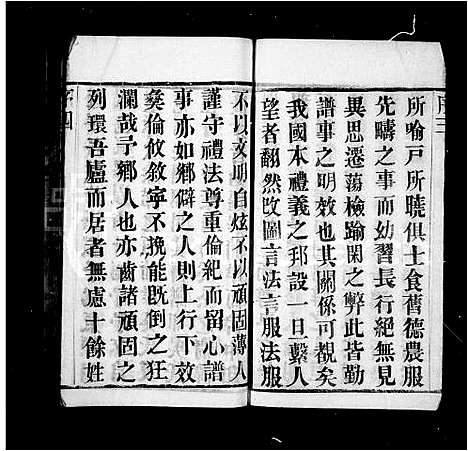 序三
所喻戸所曉俱士食舊德農服
先疇之事而幼習長行絕無見
異思遷蕩檢踰閑之弊此皆勤
譜事之明效也其關係可觀矣
我國本禮義之邦設一旦繫人
望者翻然改圖言法言服法服
不以文明自炫不以頑固薄人
謹守禮法尊重倫紀而留心譜
事亦如鄉僻之人則上行下效
彜倫攸敘寧不挽能既倒之狂
瀾哉予鄉人也亦齒諸頑固之
列環吾廬而居者無慮十餘姓
序四